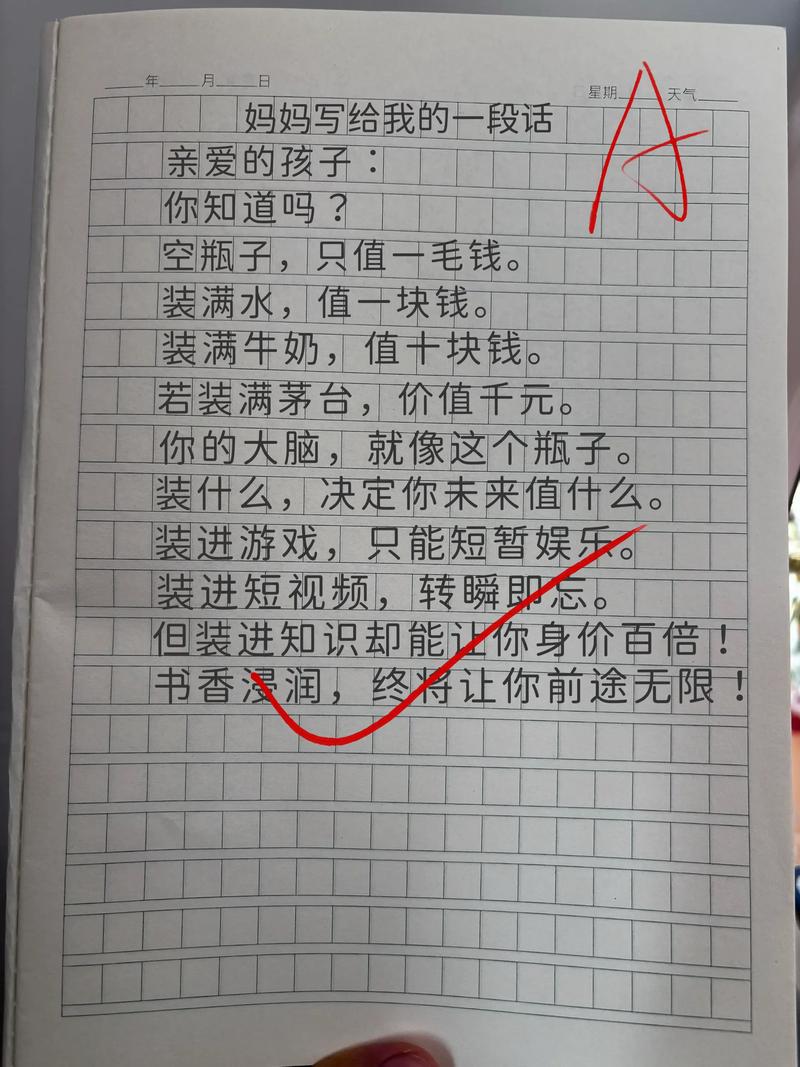 年 月 日 星期 天气
A
妈妈写给我的一段话
亲爱的孩子：
你知道吗？
空瓶子，只值一毛钱。
装满水，值一块钱。
装满牛奶，值十块钱。
若装满茅台，价值千元。
你的大脑，就像这个瓶子。
装什么，决定你未来值什么。
装进游戏，只能短暂娱乐。
装进短视频，转瞬即忘。
但装进知识却能让你身价百倍！
书香浸润，终将让你前途无限！